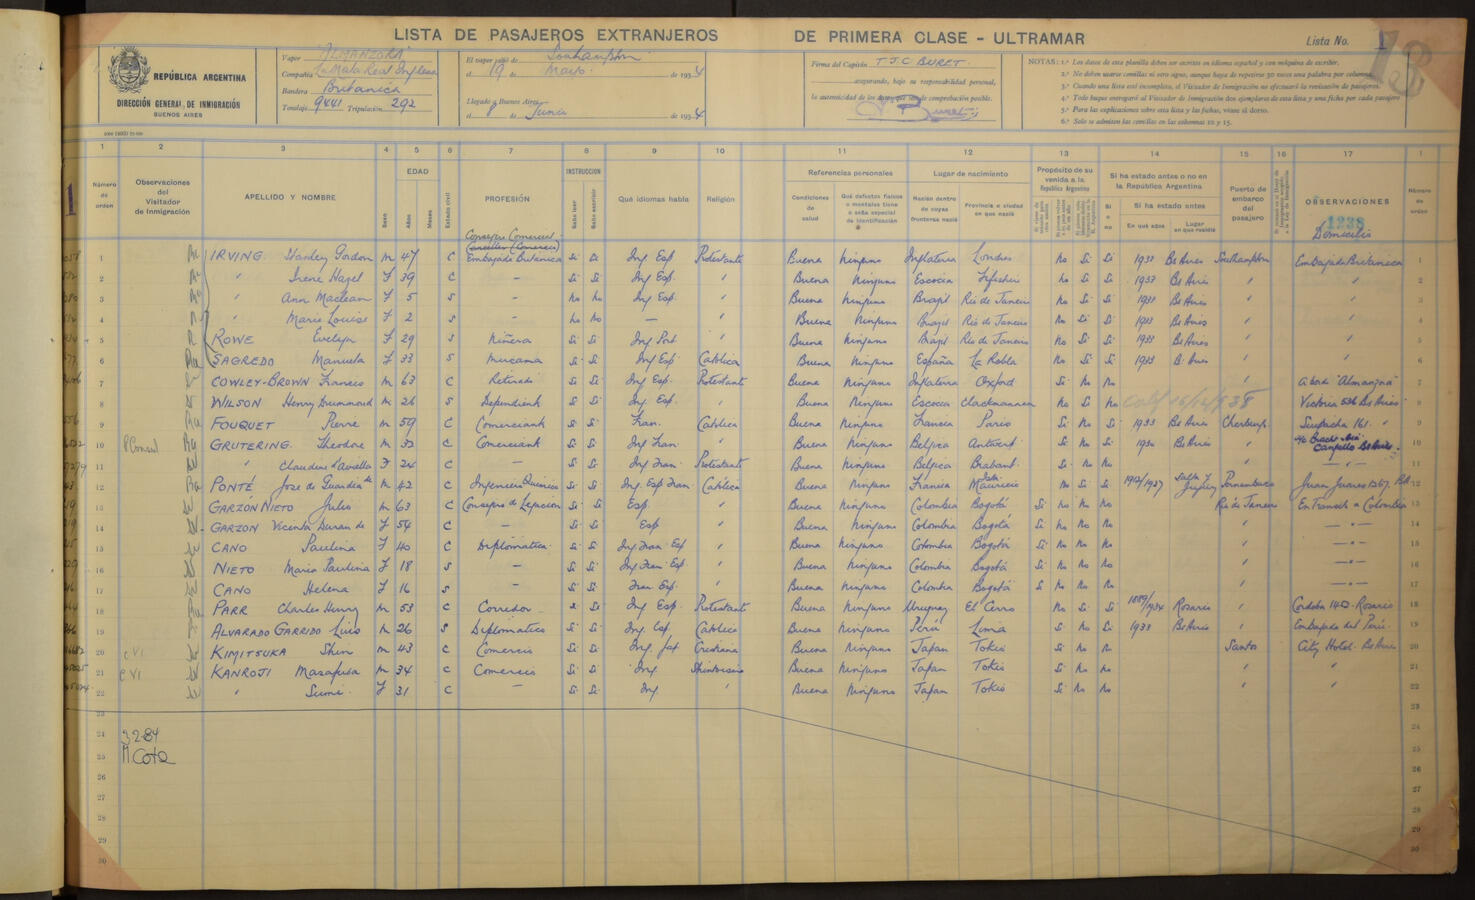 LISTA DE PASAJEROS EXTRANJEROS DE PRIMERA CLASE - ULTRAMAR
Lista No. 1
18
REPÚBLICA ARGENTINA
DIRECCIÓN GENERAL DE INMIGRACIÓN
BUENOS AIRES
Vapor "ALMANZORA"
Compañía La Mala Real Inglesa
Bandera Britanica
Tonelaje 9441 Tripulación 292
Southampton
el 19 de Mayo de 1934
Llegado a Buenos Aires
el 8 de Junio de 1934
Firma del Capitán T J C BURET
asegurando, bajo su responsabilidad personal,
la autenticidad de los datos que son de comprobación posible.
NOTAS: 1.º Los datos de esta planilla deben ser escritos en idioma español y con máquina de escribir.
2.º No deben usarse comillas ni otro signo, aunque haya de repetirse 30 veces una palabra por columna.
3.º Cuando una lista esté incompleta, el Visitador de Inmigración no efectuará la revisación de pasajeros.
4.º Todo buque entregará al Visitador de Inmigración dos ejemplares de esta lista y una ficha por cada pasajero
5.º Para las explicaciones sobre esta lista y las fichas, véase al dorso.
6.º Solo se admiten las comillas en las columnas 10 y 15.
1 2 3 4 5 6 7 8 9 10 11 12 13 14 15 16 17 1
Número de orden
Observaciones del Visitador de Inmigración
APELLIDO Y NOMBRE
Sexo
EDAD
Años
Meses
Estado civil
PROFESIÓN
INSTRUCCION
Sabe leer
Sabe escribir
Qué idiomas habla
Religión
Referencias personales
Condiciones de salud
Qué defectos físicos o mentales tiene o seña especial de identificación
Lugar de nacimiento
Nación dentro de cuyas fronteras nació
Provincia o ciudad en que nació
Propósito de su venida a la República Argentina
Si ha estado antes o no en la República Argentina
Si o no
Si ha estado antes
En qué años
Lugar en que residió
Puerto de embarco del pasajero
OBSERVACIONES
1238
Domicilio
Número de orden
1
Consejero Comercial
1 IRVING Stanley Gordon m 47 C Embajada Britanica Si Si Ing Esp Protestante Buena Ninguno Inglaterra Londres No Si Si 1933 Bs Aires Southampton Embajada Britanica 1
2 " Irene Hazel F 39 C - Si Si Ing Esp. " Buena Ninguno Escocia No Si Si 1933 Bs Aires " " 2
3 " Ann Maclean F 5 S - No No Ing Esp. " Buena Ninguno Brazil Rio de Janeiro No Si Si 1933 Bs Aires " " 3
4 " Marie Louise F 2 S - No No — " Buena Ninguno Brazil Rio de Janeiro No Si Si 1933 Bs Aires " 4
5 ROWE Evelyn F 29 S Niñera Si Si Ing Port " Buena Ninguno Brazil Rio de Janeiro No Si Si 1933 Bs Aires " 5
6 SAGREDO Manuela F 33 S Mucama Si Si Ing Esp Catolica Buena Ninguno España La Robla No Si Si 1933 B. Aires " 6
7 COWLEY-BROWN Francis m 63 C Retirado Si Si Ing Esp. Protestante Buena Ninguno Inglaterra Oxford Si No No " a bordo "Almanzora" 7
8 WILSON Henry Drummond m 26 S Dependiente Si Si Ing Esp. " Buena Ninguno Escocia Clackmannan No Si No " Victoria 536 Bs Aires 8
9 FOUQUET Pierre m 59 C Comerciante Si Si Fran. Catolica Buena Ninguno Francia Paris No Si Si 1933 Bs Aires Cherburgo Suipacha 161. 9
P Consul
10 GRUTERING Theodore m 33 C Comerciante Si Si Ing Fran. " Buena Ninguno Belgica No Si Si 1930 Bs Aires " 10
11 " Claudine F 24 C - Si Si Ing Fran. Protestante Buena Ninguno Belgica Brabant Si No No " 11
12 PONTÉ Jose de Guardia m 42 C Ingeniero Quimico Si Si Ing. Esp Fran. Católica Buena Ninguno Francia No Si Si 1912/1927 Salta y Jujuy Pernambuco Juan Juares 1267, BA 12
13 GARZON NIETO Julio m 63 C Consejero de Legacion Si Si Esp. " Buena Ninguno Colombia Bogotá Si No No No Rio de Janeiro En Transito a Colombia 13
14 GARZON Vicenta Duran de F 54 C - Si Si Esp " Buena Ninguno Colombia Bogotá Si No No No " — " — 14
15 CANO Paulina F 40 C Diplomatica Si Si Ing Fran Esp " Buena Ninguno Colombia Bogotá Si No No No " — " — 15
16 NIETO Maria Paulina F 18 S - Si Si Ing Fran Esp. " Buena Ninguno Colombia Bogotá Si No No No " — " — 16
17 CANO Helena F 16 S - Si Si Fran Esp. " Buena Ninguno Colombia Bogotá Si No No No " — " — 17
18 PARR Charles Henry m 53 C Corredor Si Ing Esp. Protestante Buena Ninguno Uruguay El Cerro No Si Si 1889/1934 Rosario " Cordoba 1412 - Rosario 18
19 ALVARADO GARRIDO Luis m 26 S Diplomatico Si Si Ing Esp. Catolica Buena Ninguno Perú Lima Si No Si 1933 Bs Aires " Embajada del Perú. 19
20 KIMITSUKA Shin m 43 C Comercio Si Si Ing. Jap Cristiana Buena Ninguno Japan Tokio Si No No Santos City Hotel. Bs Aires 20
21 KANROJI Masafusa m 34 C Comercio Si Si Ing Shintoista Buena Ninguno Japan Tokio Si No No " " 21
22 " Sumi. F 31 C - Si Si Ing " Buena Ninguno Japan Tokio Si No No " " 22
23
24 3-2-84
25 M Cota 25
26 26
27 27
28 28
29 29
30 30